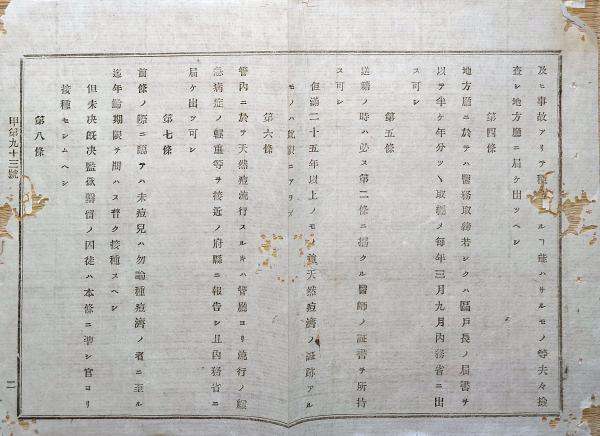 及ヒ事故アリテ種ユルヿ能ハサルモノ等夫々撿
査シ地方廳ニ届ケ出ツヘシ
第四條
地方廳ニ於テハ醫務取締若シクハ區戸長ノ届書ヲ
以テ半ケ年分ツヽ取纏メ毎年三月九月內務省ニ出
ス可シ
第五條
送籍ノ時ハ必ス第二條ニ掲クル醫師ノ証書ヲ所持
ス可シ
但滿二十五年以上ノモノ並天然痘濟ノ証跡アル
モノハ此限ニアラス
第六條
管內ニ於テ天然痘流行スルキハ管廳ヨリ流行ノ緩
急病症ノ輕重等ヲ接近ノ府縣ニ報告シ且內務省ニ
届ケ出ツ可シ
第七條
前條ノ際ニ臨テハ未痘兒ハ勿論種痘濟ノ者ニ至ル
迄年齡期限ヲ問ハス普ク接種スヘシ
但未决既决監獄懲留ノ囚徒ハ本條ニ準シ官ヨリ
接種セシムヘシ
第八條
甲第九十三號
二